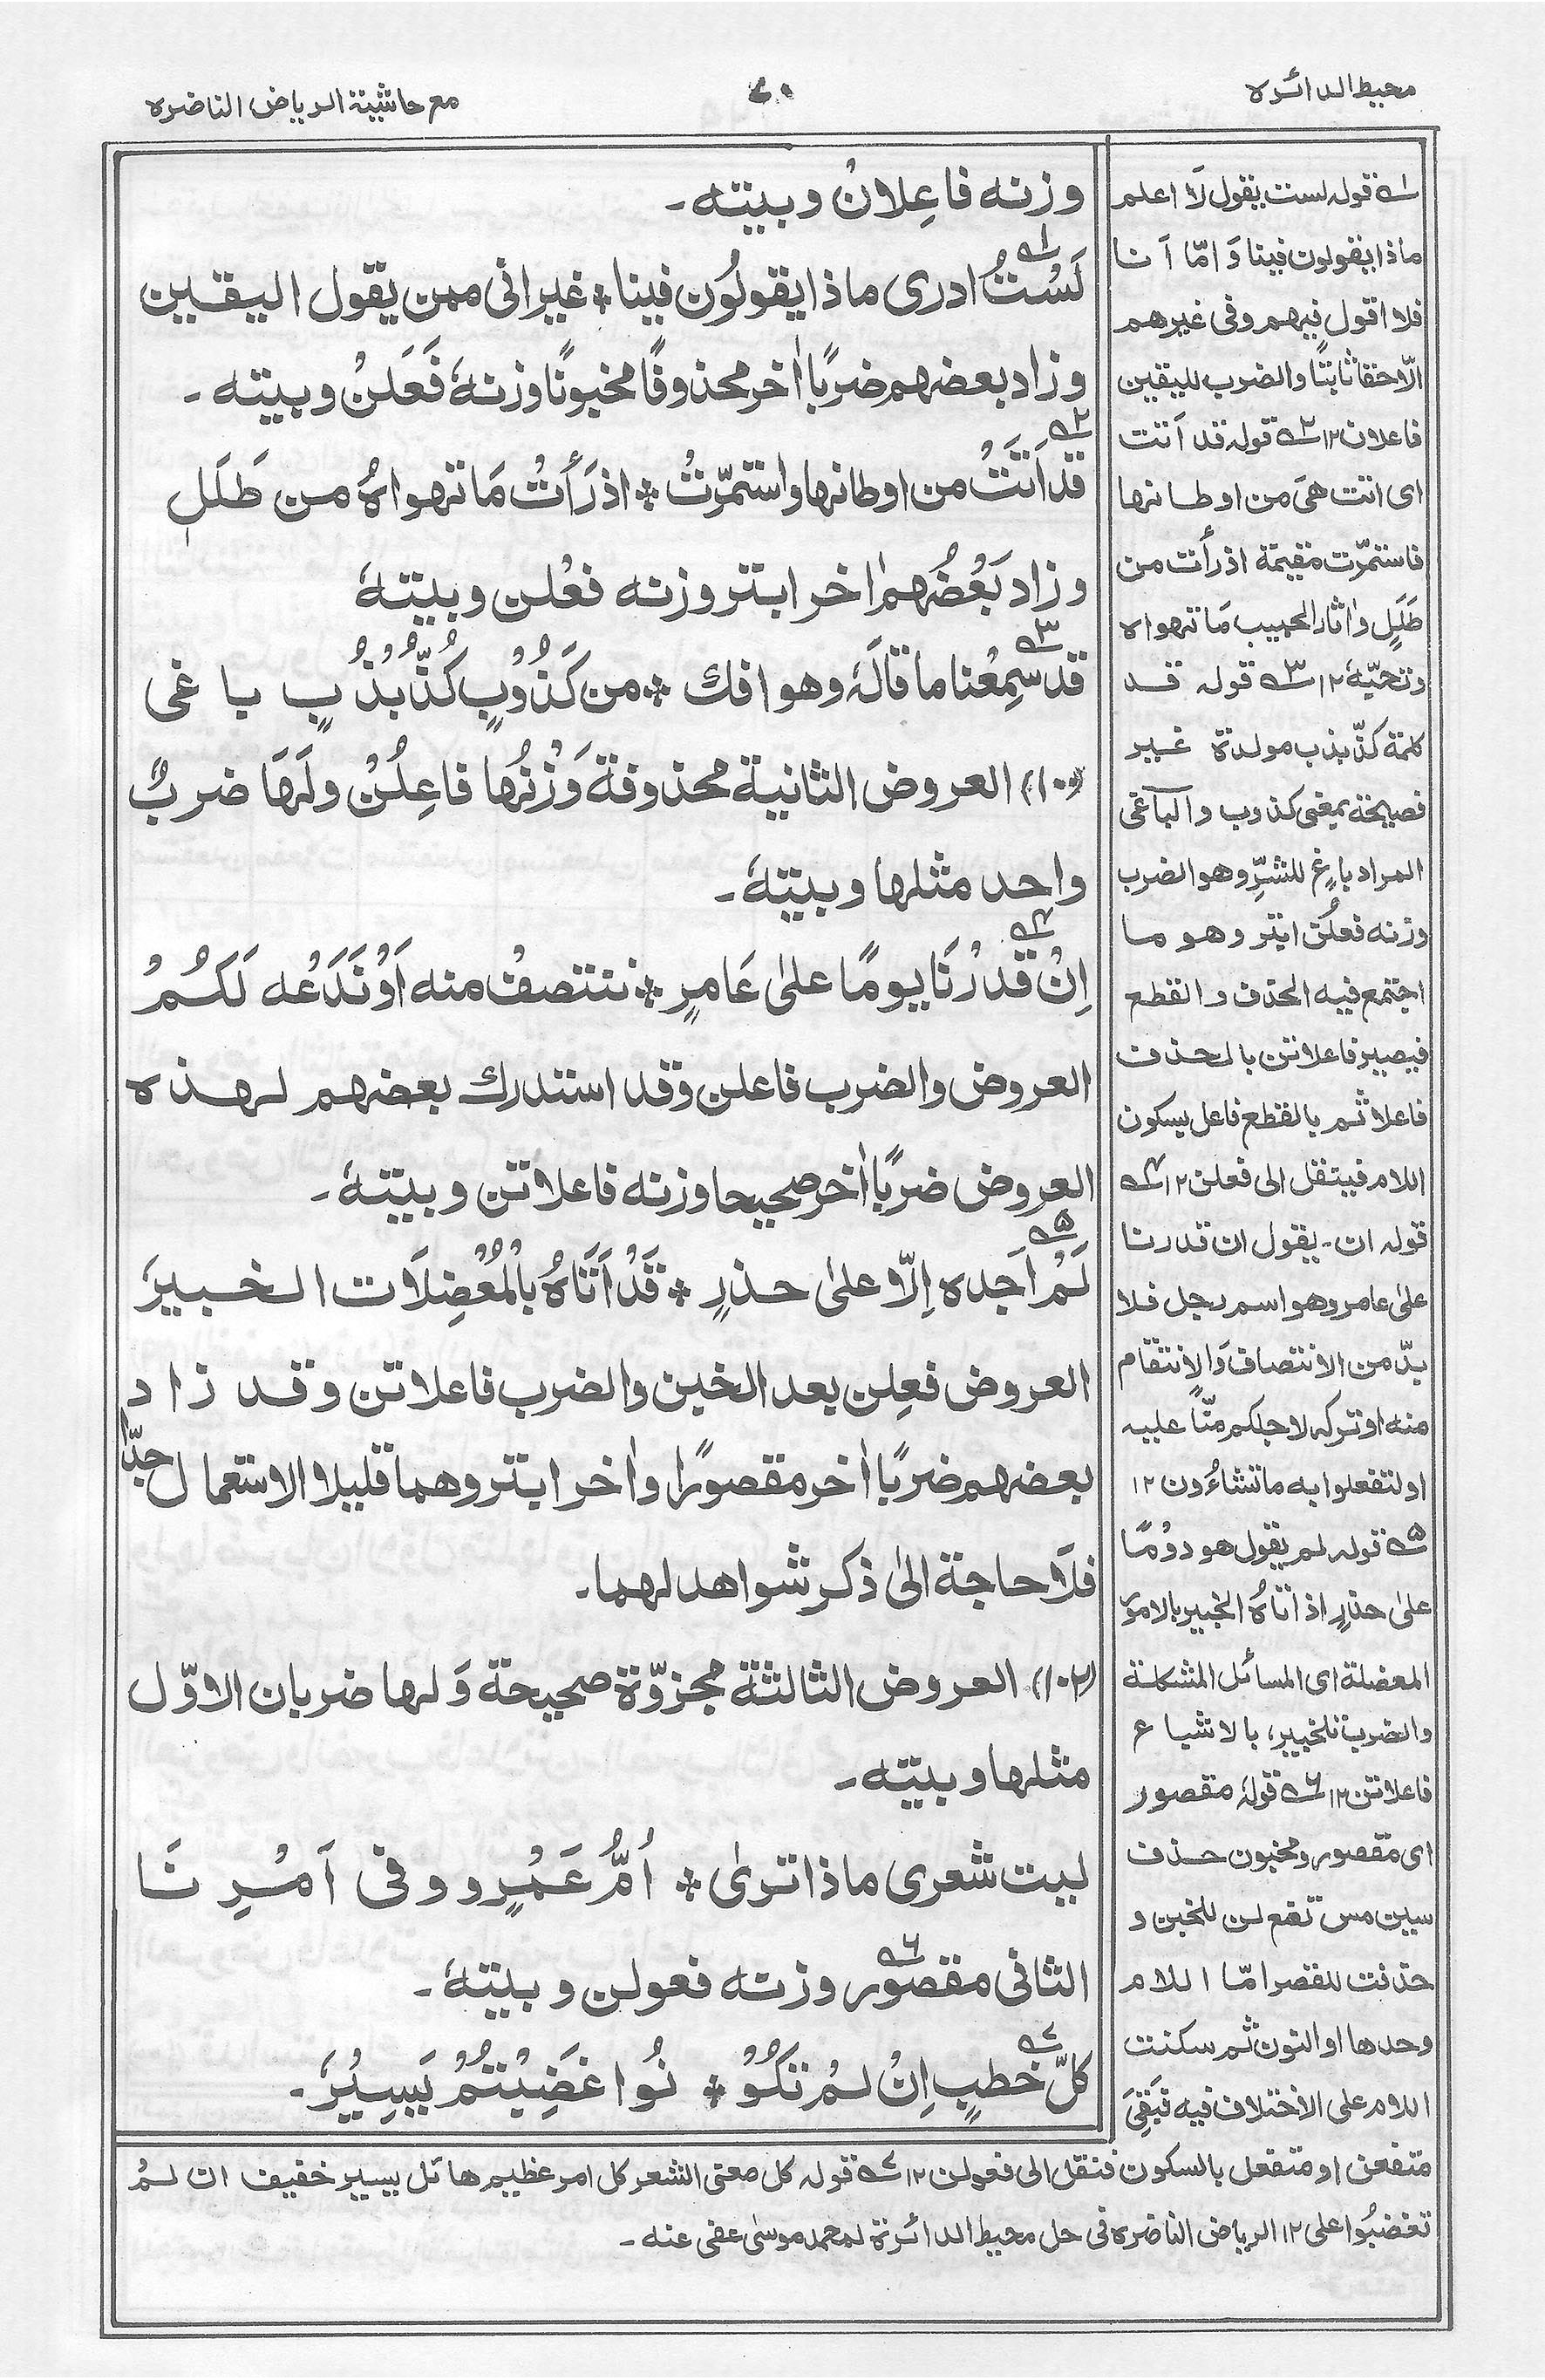 محيط الدائره
٧٠
مع حاشية الرياض الناضره
وزنه فاعِلانْ وبيته۔
لَسْتُ ادرى ماذا يقولُون فينا * غير انى ممن يقول اليقين
وزاد بعضهم ضربًا اٰخر محذوفًا مخبونًا وزنهٗ فَعَلَنْ وبيته۔
قد اَتَتْ من اوطانها واستمرّتْ * اذ رَأَتْ مَا تهواهُ من طَلَلٖ
وزاد بَعْضُهم اٰخر ابتر وزنه فعْلن وبيتهٗ
قد سَمِعْنا ما قالَهٗ وهو افك * من كَذُوْبٍ كُذُّبْذُبٍ باغى
(١٠٠) العروض الثانية محذوفة وَزْنُها فاعِلُنْ ولَهَا ضربٌ
واحد مثلها وبيتهٗ۔
اِنْ قَدرْنَا يومًا علىٰ عَامرٍ * ننتصفْ منه اَوْ نَدَعْه لَكُمْ
العروض والضرب فاعلن وقد استدرك بعضهم لهذه
العروض ضربًا اٰخر صحيحا وزنه فاعلاتن وبيتهٗ۔
لَمْ اَجِده اِلّا علىٰ حذرٍ * قَدْ اَتَاهُ بالْمُعْضِلَات الخبيرَ
العروض فعِلن بعد الخبن والضرب فاعلاتن وقد زاد
بعضهم ضربًا اٰخر مقصورًا واٰخر ابتر وهما قليلا الاستعمال جدًّا
فلَا حاجة الىٰ ذكر شواهد لهما۔
(١٠٢) العروض الثالثة مجزوّة صحيحة وَلها ضربان الاوّل
مثلها وبيته۔
ليت شعرى ماذا ترىٰ * اُمُّ عَمْرٍو و فى اَمْرِنَا
الثانى مقصور وزنه فعولن وبيتهٗ۔
كلّ خَطبٍ اِنْ لمْ تكُوْ * نُوا غَضِبْتُمْ يَسِيْرٗ۔
١ قوله لست يقول لَا اعلم
ماذا يقولون فينا وَامّا اَنا
فلا اقول فيهم وفى غيرهم
الّا حقا ثابتًا والضرب لليقين
فاعلان ١٢ ٢ قوله قد اَتت
اى اتت هىَ من اوطانها
فاستمرّت مقيمة اذ رأت من
طَلَلٍ واٰثار الحبيب مَا تهواه
وتحبّهٗ ١٢ ٣ قوله قد
كلمة كذّبذب مولدة غير
فصيحة بمعنى كذوب والباغى
المراد باغٍ للشرِّ وهو الضرب
وزنه فعلن ابتر وهو ما
اجتمع فيه الحذف والقطع
فيصير فاعلاتن بالحذف
فاعلا ثم بالقطع فاعل بسكون
اللام فينتقل الى فعلن ١٢ ٤
قوله ان۔ يقول ان قدرنا
علىٰ عامر وهو اسم رجل فلا
بدّ من الانتصاف وَالانتقام
منه او تركه لاجلكم منّا عليه
او لتفعلوا به ما تشاءُون ١٢
٥ قوله لم يقول هو دوْمًا
علىٰ حذرٍ اذ اتاهُ الخبير بالامور
المعضلة اى المسائل المشكلة
والضرب نلخبير، بالاشباع
فاعلاتن ١٢ ٦ قولهٗ مقصور
اى مقصور ومخبون حذف
سين مس تفع لن للخبن و
حذفت للقصر امّا اللام
وحدها او النون ثم سكنت
اللام على الاختلاف فيه فبَقِىَ
متفعن او متفعل بالسكون فنقل الى فعولن ١٢ ٧ قوله كل معنى الشعر كل امر عظيم هائل يسير خفيف ان لمْ
تغضبُوا على ١٢ الرياض الناضره فى حل محيط الدائرة لمحمد موسىٰ عفى عنه۔